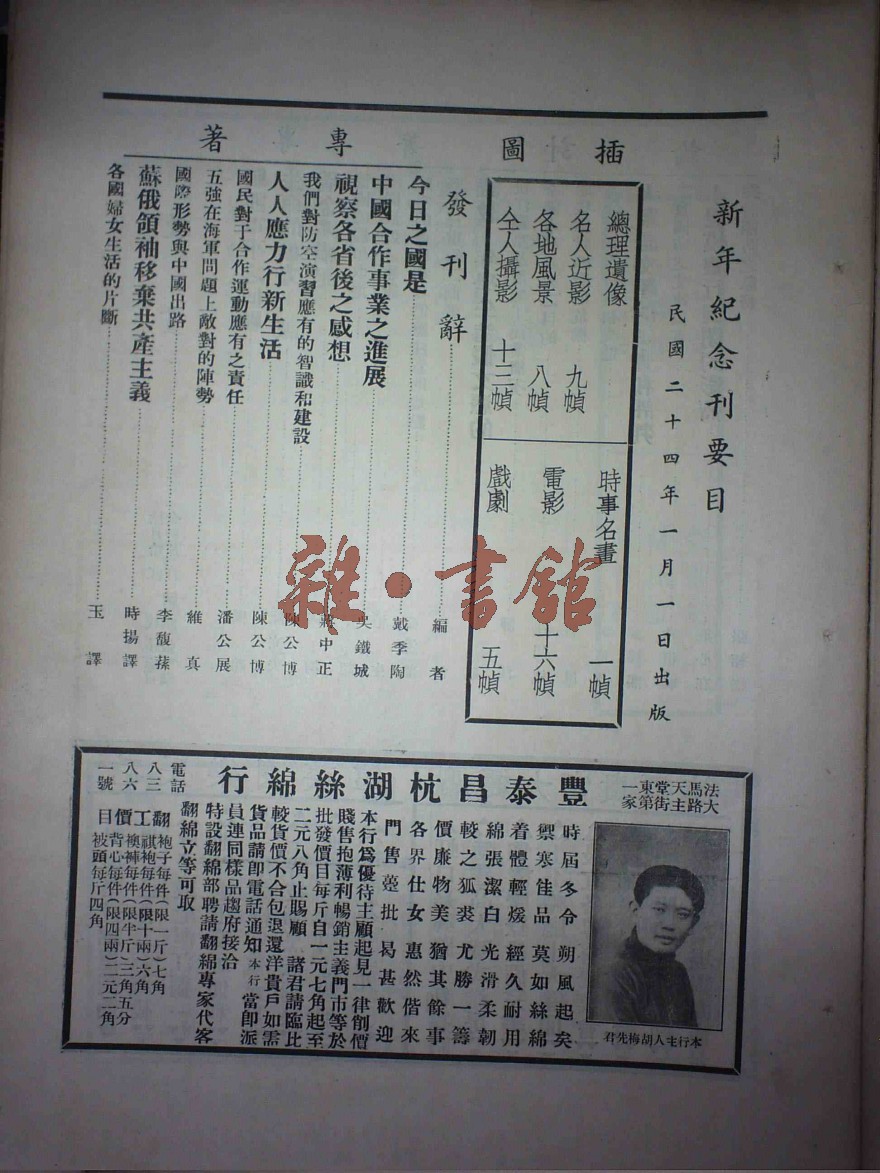 新年紀念刊要目
民國二十四年一月一日出版
插圖
總理遺像
名人近影 九幀
各地風景 八幀
仝人攝影 十三幀
時事名畫 一幀
電影 十六幀
戲劇 五幀
專著
發刊辭 編者
今日之國是 戴季陶
中國合作事業之進展 吳鐵城
視察各省後之感想 蔣中正
我們對防空演習應有的智識和建設 陳公博
人人應力行新生活 陳公博
國民對于合作運動應有之責任 潘公展
五強在海軍問題上敵對的陣勢 維真
國際形勢與中國出路 李馥蓀
蘇俄領袖移棄共產主義 時揚譯
各國婦女生活的片斷 玉譯
雜·書館
法馬天堂東一
大路主街第家
豐泰昌杭湖絲綿行
本行主人胡梅先君
時屆冬令 朔風起矣
禦寒佳品 莫如絲綿
着體輕煖 經久耐用
綿張潔白 光滑柔韌
較之狐裘 尤勝一籌
價廉物美 猶其餘事
各界仕女 惠然偕來
門售躉批 曷甚歡迎
本行爲優待主顧起見一律削價
賤售抱薄利暢銷主義門市等於
批發價目每斤自一元七角起至
二元八角止賜顧 諸君請臨比
較貨價不合包退還洋貴戶如需
貨品請即電話通知本行當即派
員連同樣品趨府接洽
特設翻綿部聘請翻綿專家代客
翻綿立等可取
翻工價目
袍子每件(限一斤)七角
祺袍每件(限十兩)六角
襖褲每件(限半斤)三角五分
背心每件(限四兩)二元二角
被頭每斤四角
電話
八三
八六
一號